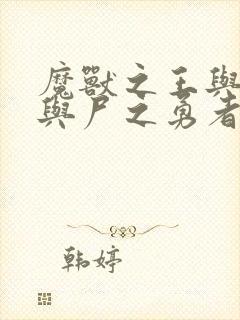 魔獸之王與
與尸之勇者
韩婷